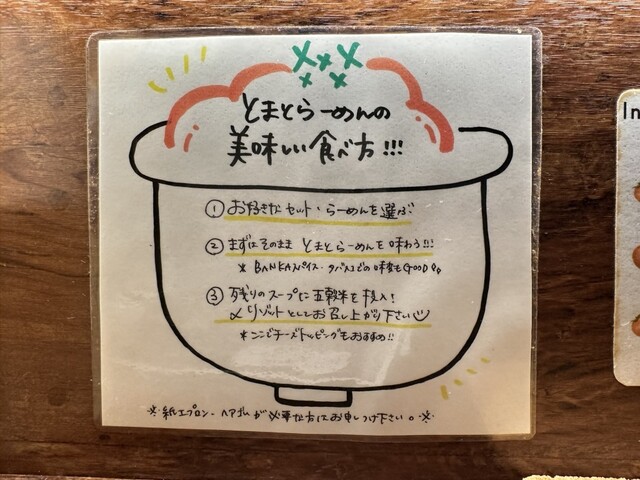 とまとらーめんの
美味しい食べ方!!!
① お好きなセット・らーめんを選ぶ
② まずはそのまま とまとらーめんを味わう!!!
※BANKAスパイス・タバスコでの味変もGOOD
③ 残りのスープに五穀米を投入!
リゾットとしてお召し上がり下さい
※ここでチーズトッピングもおすすめ!!
※紙エプロン・ヘアゴムが必要な方はお申しつけ下さい。※
In